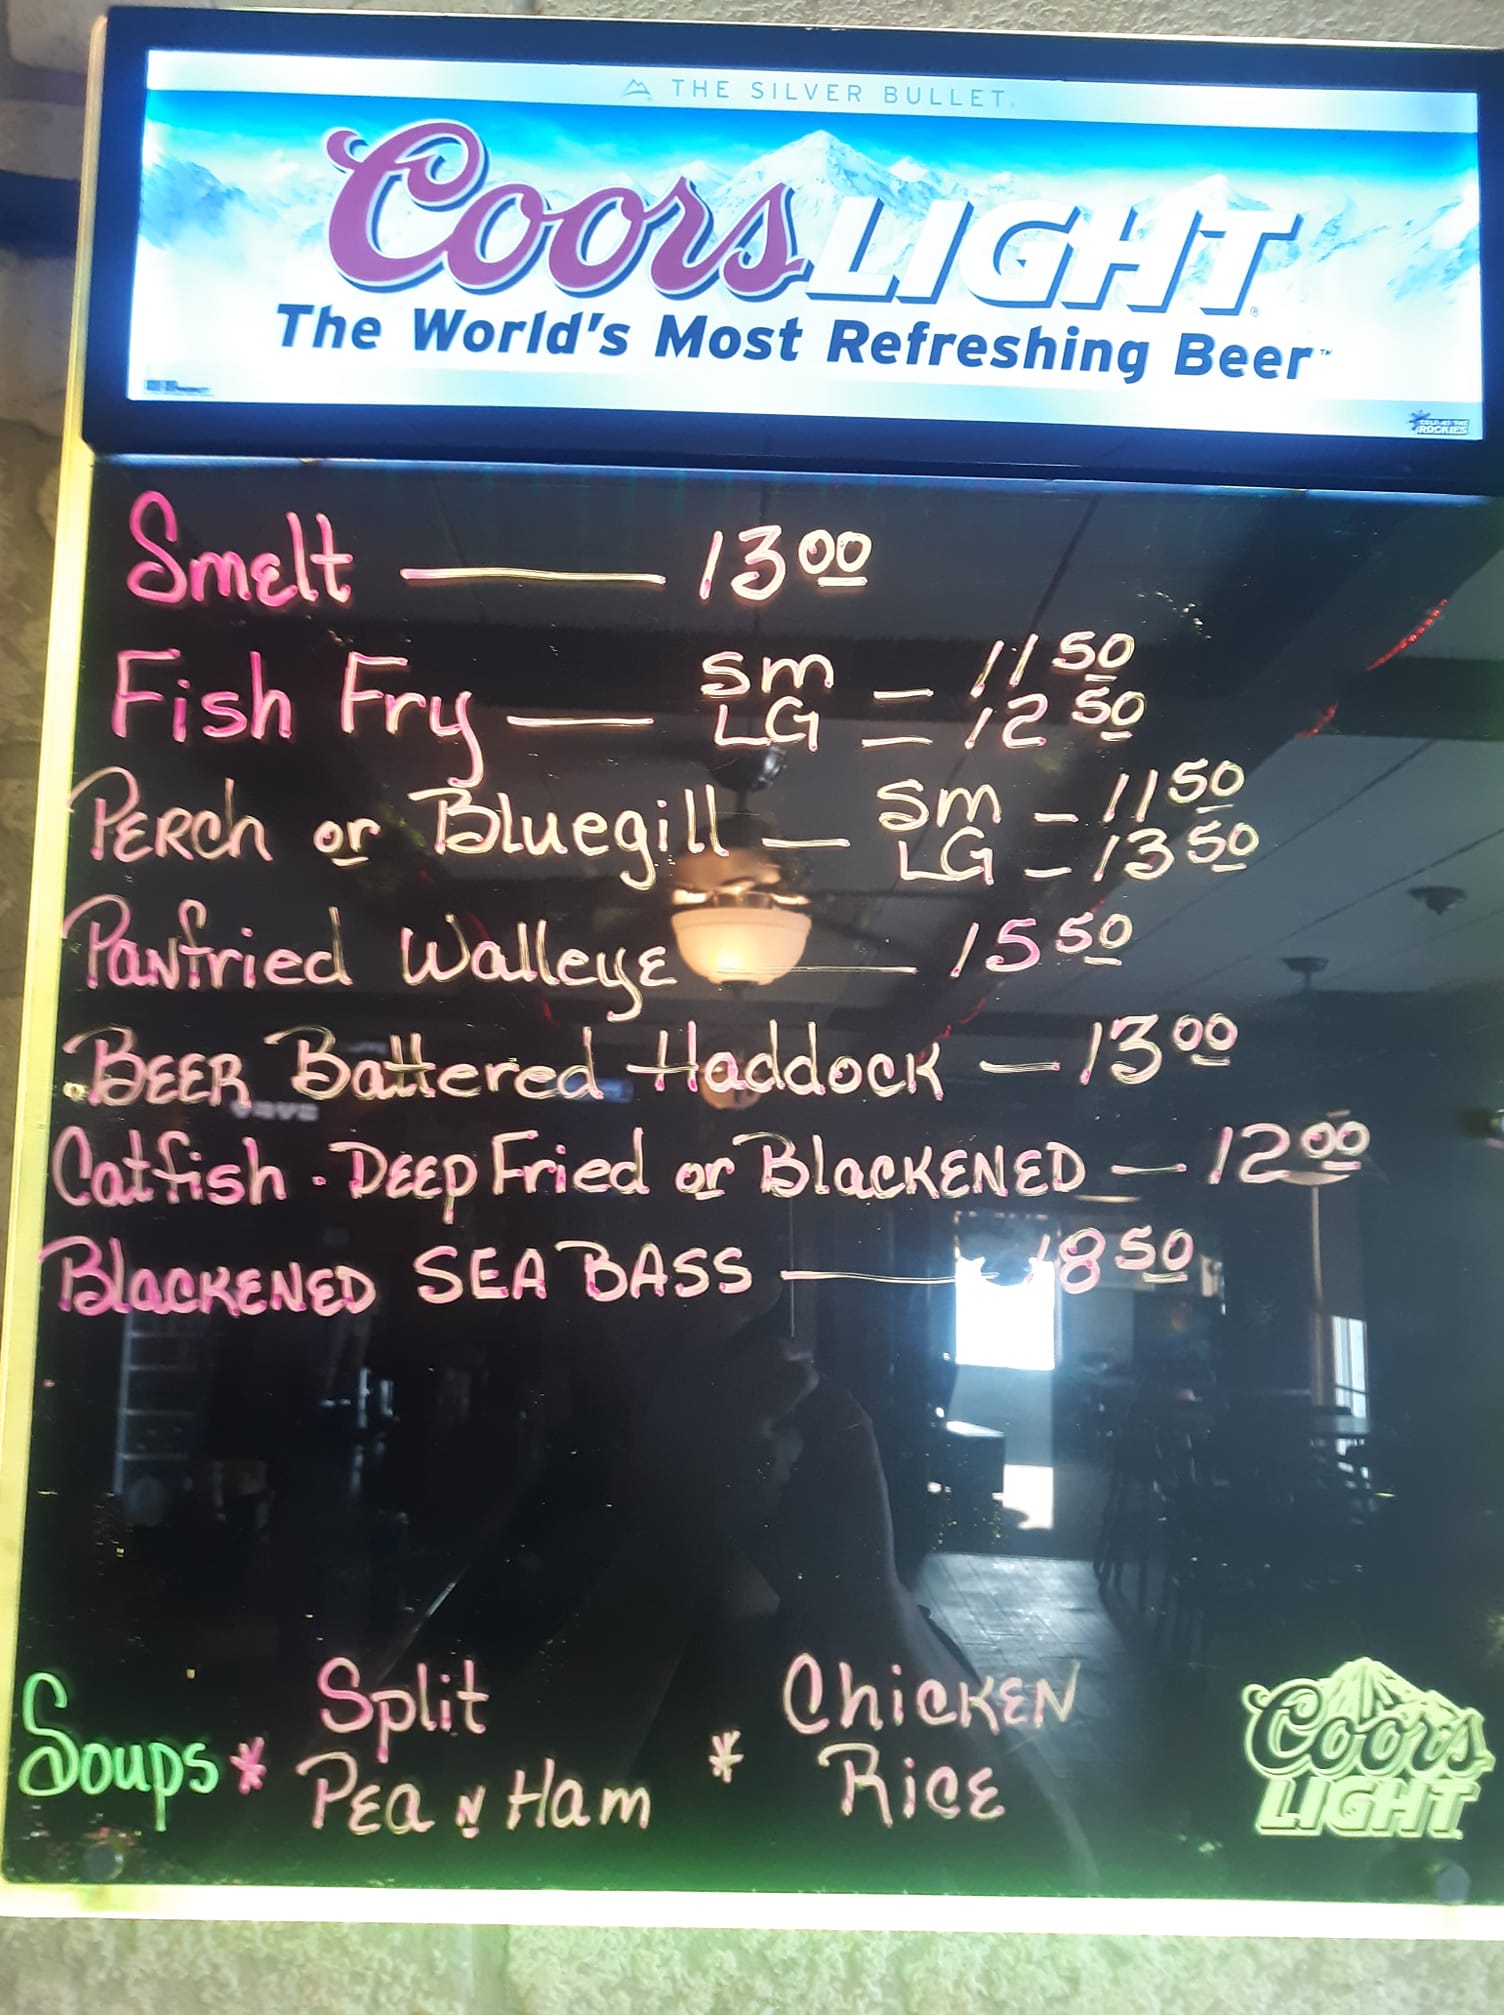 THE SILVER BULLET.
Coors LIGHT
The World's Most Refreshing Beer™
COLD AS THE
ROCKIES
Smelt — 13 00
Fish Fry — Sm — 11 50
LG — 12 50
PERch or Bluegill — Sm — 11 50
LG — 13 50
Panfried Walleye — 15 50
BEER Battered Haddock — 13 00
Catfish · DEEP Fried or BlacKENED — 12 00
BlacKENED SEA BASS — 18 50
Soups * Split
PEa N Ham
* ChicKEN
RicE
Coors
LIGHT